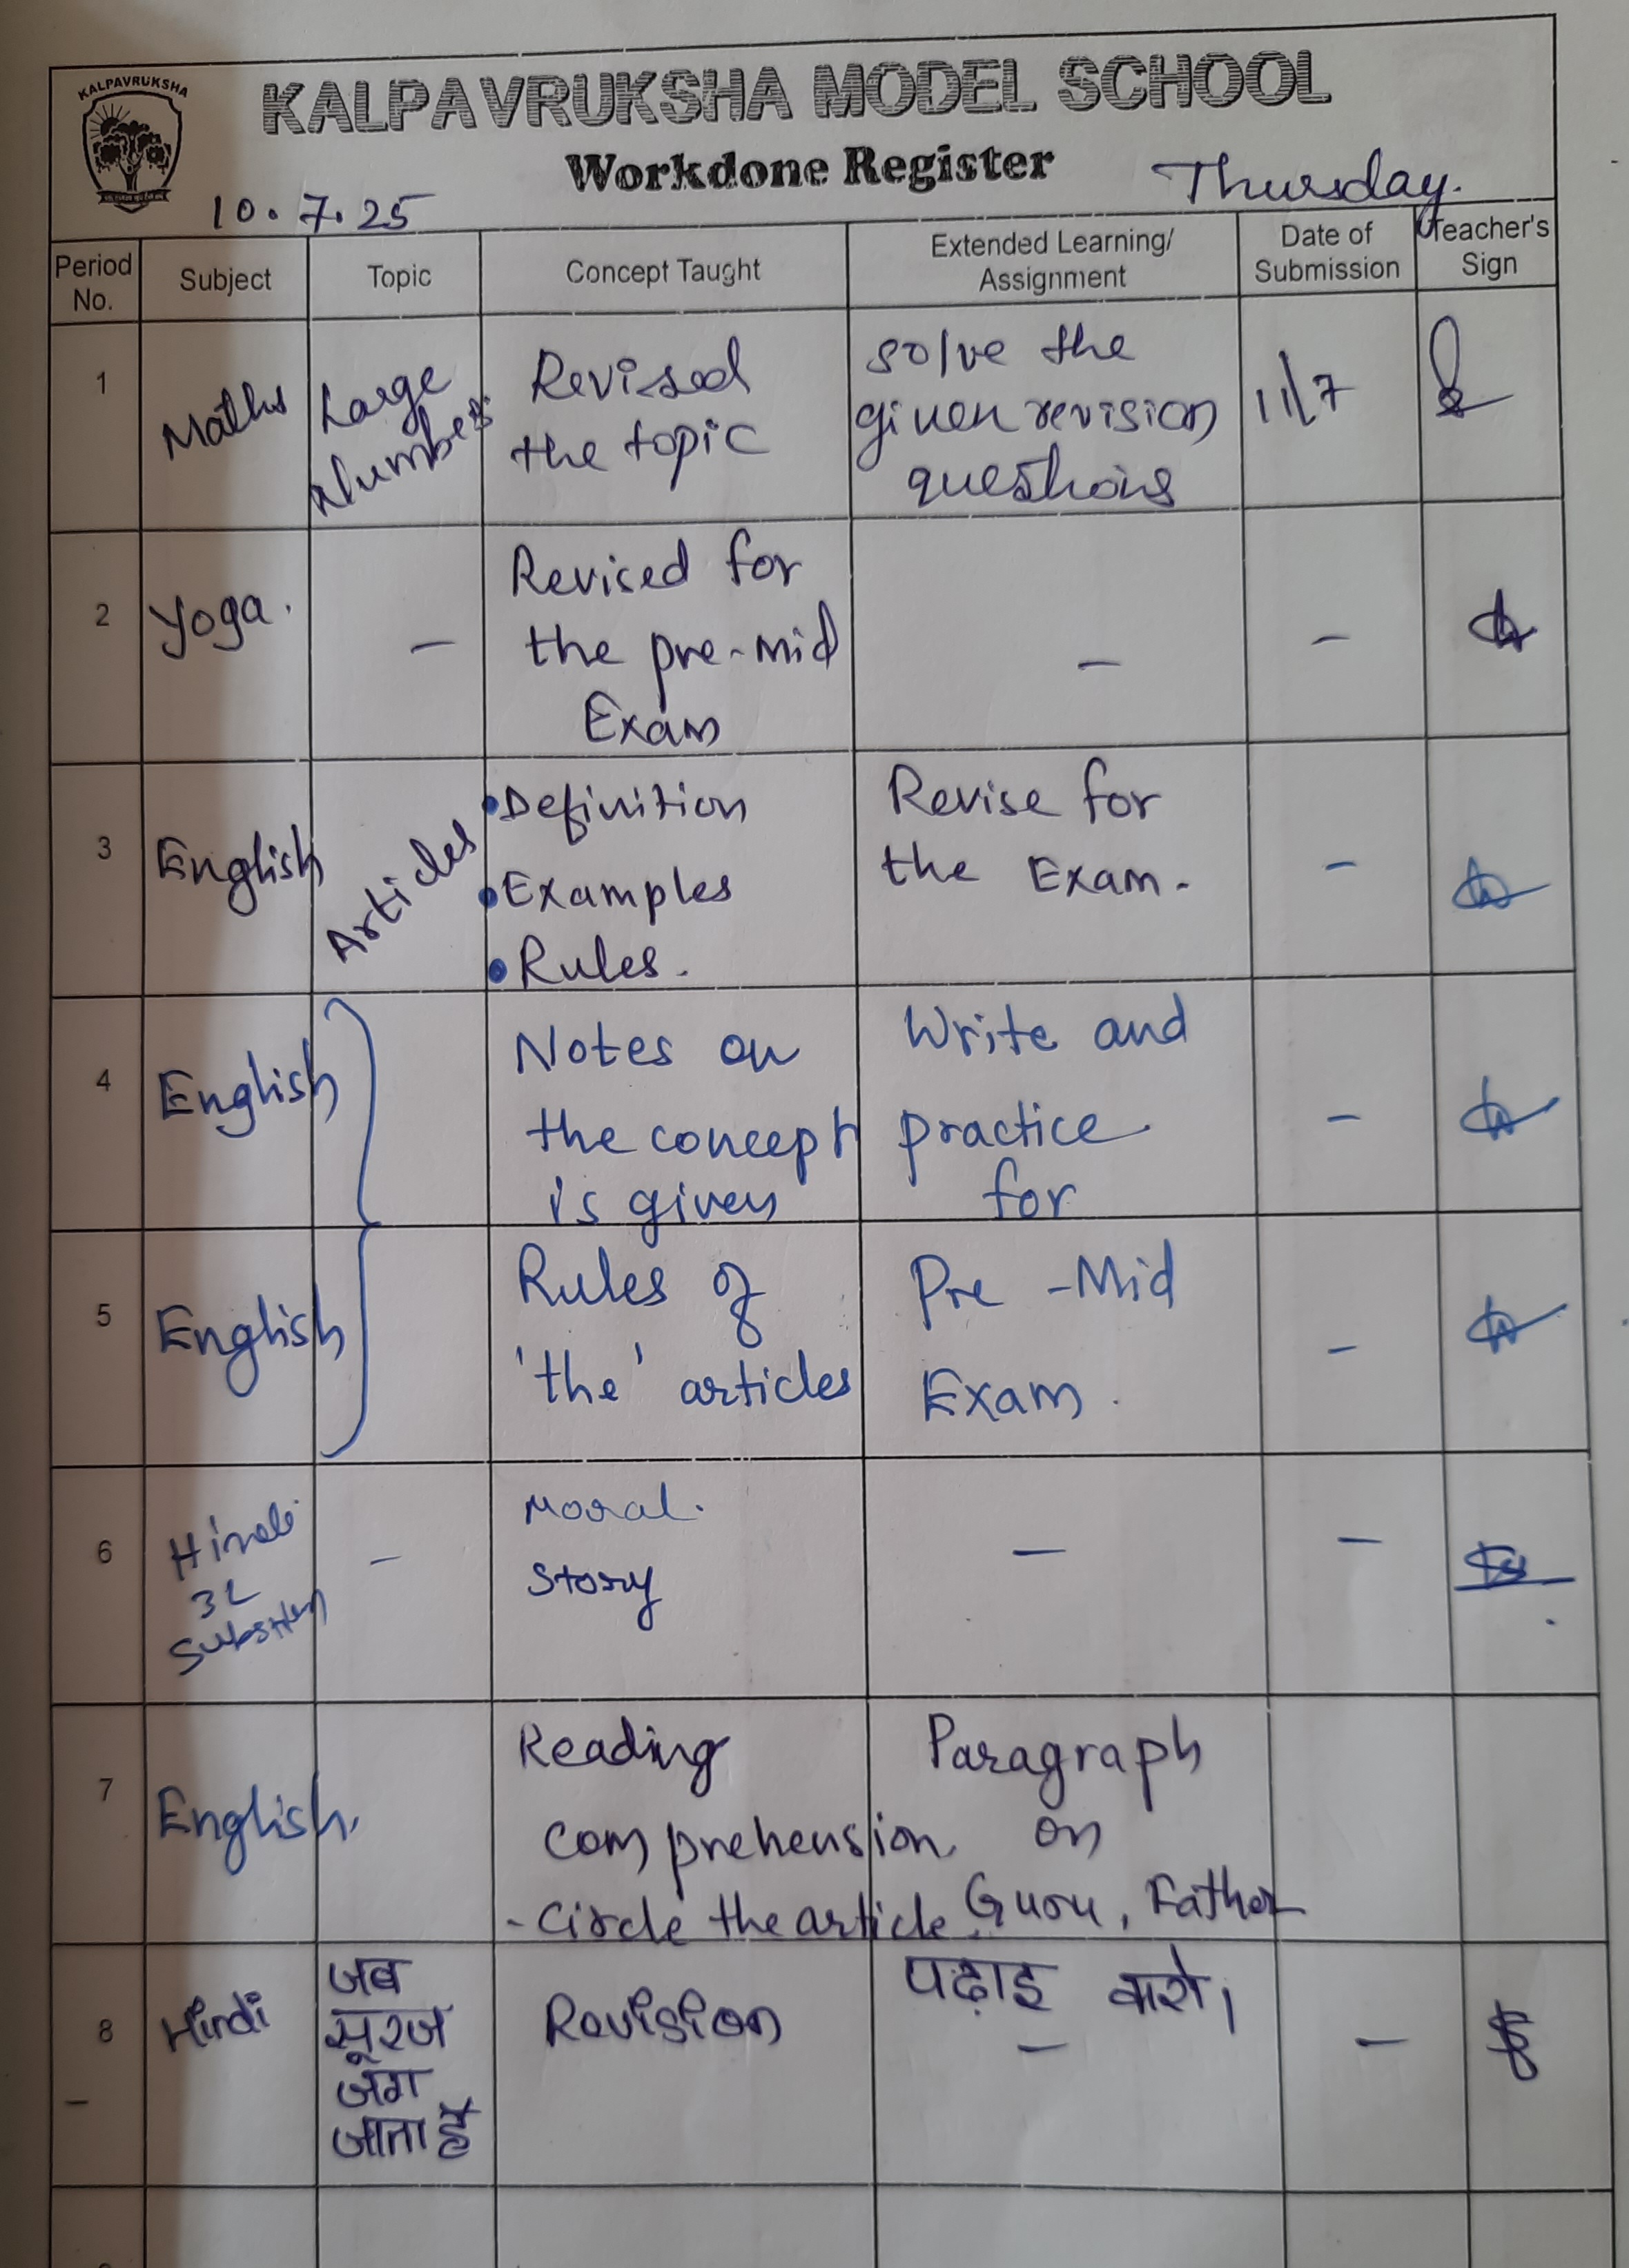 KALPAVRUKSHA
KALPAVRUKSHA MODEL SCHOOL
Workdone Register
10.7.25
Thursday.
Period No.
Subject
Topic
Concept Taught
Extended Learning/
Assignment
Date of
Submission
Teacher's
Sign
1
Maths
Large
Numbers
Revised
the topic
solve the
given revision
questions
11/7
2
Yoga.
-
Revised for
the pre-mid
Exam
-
-
3
English
Articles
•Definition
•Examples
•Rules.
Revise for
the Exam.
-
4
English
Notes on
the concept
is given
Write and
practice
for
-
5
English
Rules of
'the' articles
Pre-Mid
Exam.
-
6
Hindi
3L
-
Moral.
Story
-
-
7
English.
Reading
comprehension
- Circle the article.
Paragraph
on
Guru, Father
8
Hindi
जब
सूरज
जग
जाता है
Revision
पढ़ाइ करो।
-
-